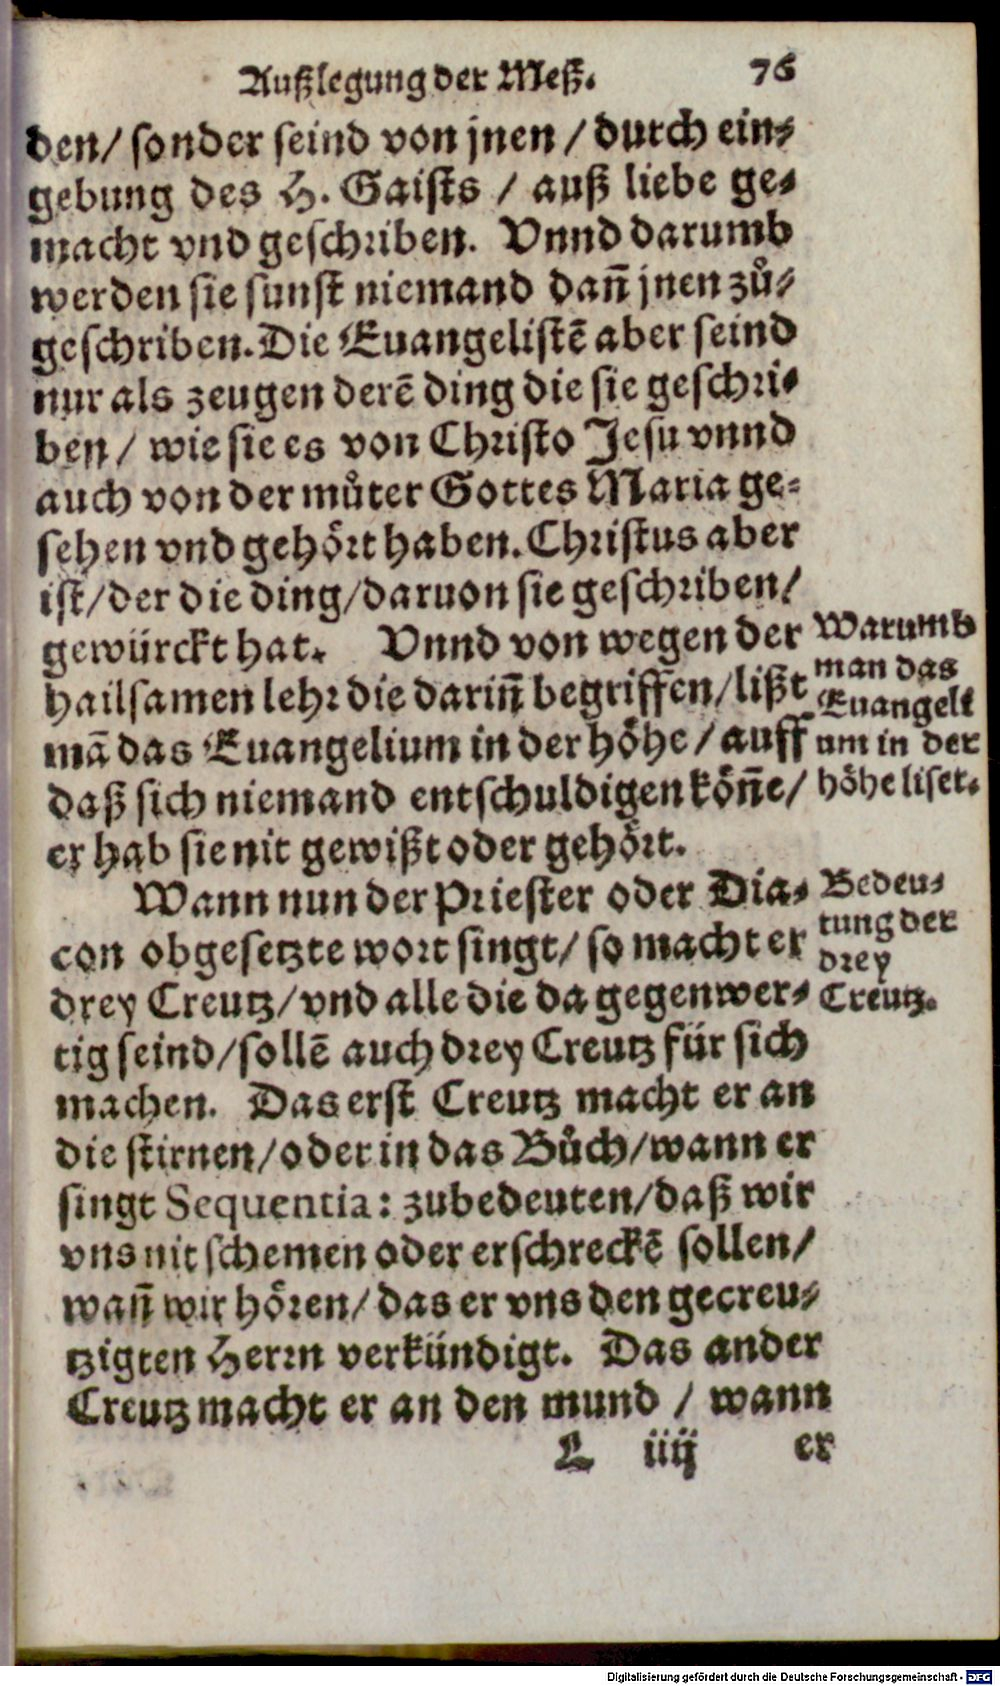 Außlegung der Meß. 76
den/ sonder seind von jnen / durch ein⸗
gebung des H. Gaists / auß liebe ge⸗
macht vnd geschriben. Vnnd darumb
werden sie sunst niemand dañ jnen zů⸗
geschriben. Die Euangelistẽ aber seind
nur als zeugen derẽ ding die sie geschri⸗
ben / wie sie es von Christo Jesu vnnd
auch von der můter Gottes Maria ge⸗
sehen vnd gehört haben. Christus aber
ist/ der die ding/ daruon sie geschriben/
gewürckt hat. Vnnd von wegen der
hailsamen lehr die dariñ begriffen/ lißt
mã das Euangelium in der höhe / auff
daß sich niemand entschuldigen köñe/
er hab sie nit gewißt oder gehört.
Warumb
man das
Euangeli
um in der
höhe liset.
Wann nun der Priester oder Dia⸗
con obgesetzte wort singt/ so macht er
drey Creutz/ vnd alle die da gegenwer⸗
tig seind/ sollẽ auch drey Creutz für sich
machen. Das erst Creutz macht er an
die stirnen/ oder in das Bůch/ wann er
singt Sequentia: zubedeuten/ daß wir
vns nit schemen oder erschreckẽ sollen/
wañ wir hören/ das er vns den gecreu⸗
tzigten Herrn verkündigt. Das ander
Creutz macht er an den mund / wann
Bedeu⸗
tung der
drey
Creutz.
L iiij er
Digitalisierung gefördert durch die Deutsche Forschungsgemeinschaft - DFG